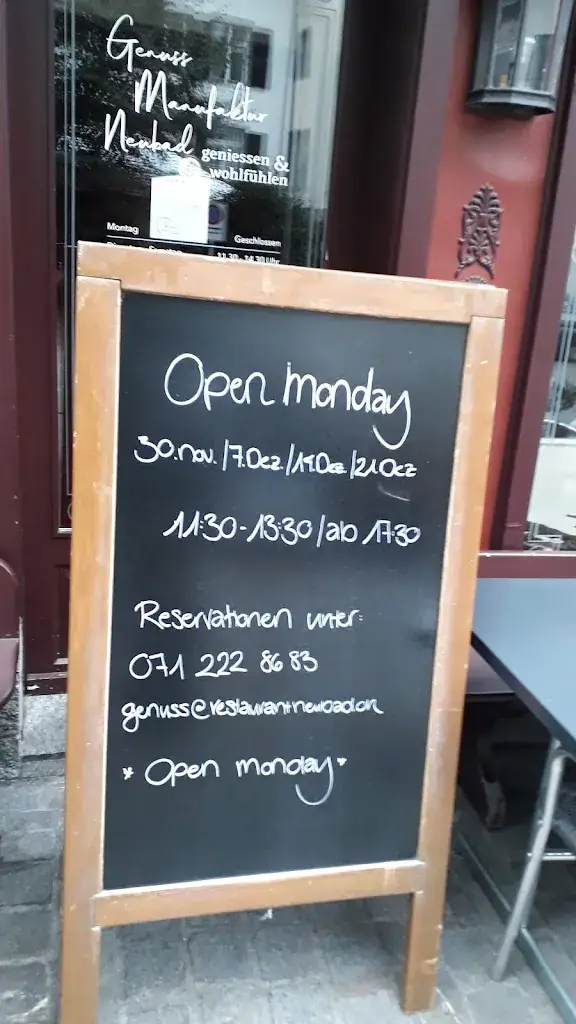 Genuss
Manufaktur
Neubad geniessen &
wohlfühlen
Montag Geschlossen
11.30 - 14.30 Uhr
Open Monday
30.Nov. / 7.Dez / 14.Dez / 21.Dez
11:30 - 13:30 / ab 17:30
Reservationen unter:
071 222 86 83
genuss@restaurantneubad.ch
* Open monday *